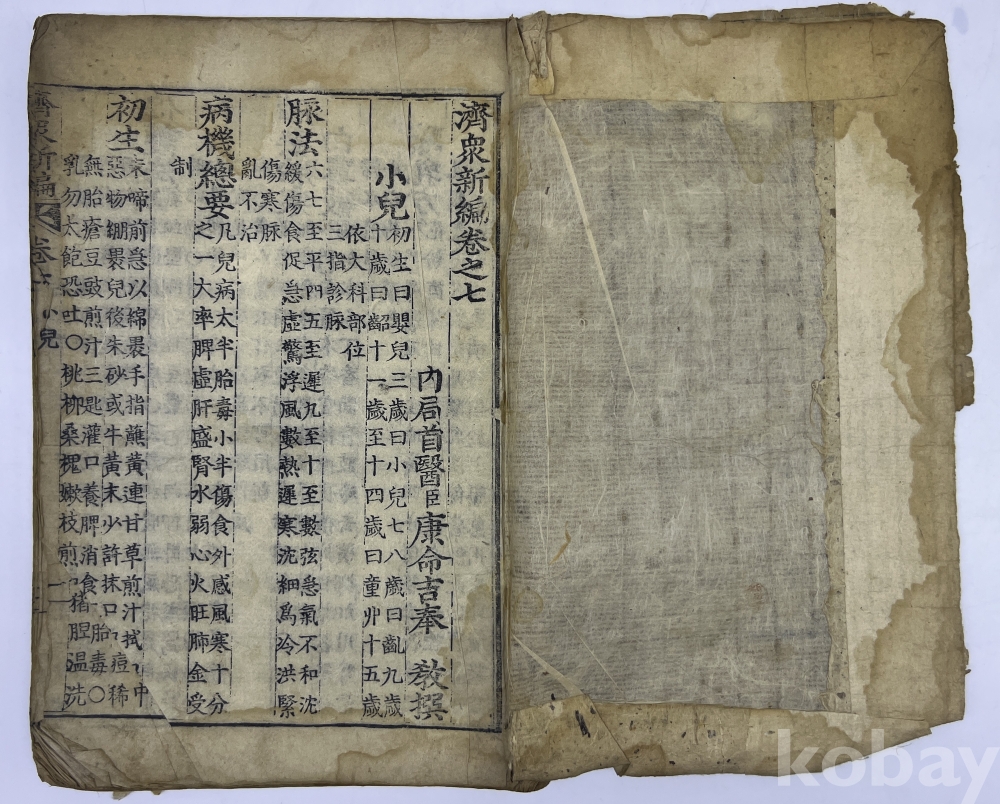 濟衆新編卷之七
內局首醫臣康命吉奉 敎撰
小兒
初生曰嬰兒三歲曰小兒七八歲曰齠九歲
十歲曰齠十一歲至十四歲曰童丱十五歲
依大科部位
三指診脉
脉法
六七至平四五至遲九至十至數弦急氣不和沈
緩傷食促急虛驚浮風數熱遲寒沈細爲冷洪緊
傷寒脉
亂不治
病機總要
凡兒病太半胎毒小半傷食外感風寒十分
之一大率脾虛肝盛腎水弱心火旺肺金受
制
初生
未啼前急以綿裹手指蘸黃連甘草煎汁拭口中
惡物綳裹兒後朱砂或牛黃末少許抹口口痘稀
無胎瘡豆豉煎汁三匙灌口養脾消食胎毒○
乳勿太飽恐吐○桃柳桑槐嫩枝煎猪胆溫洗
濟衆新編 卷七 小兒 一
kobay